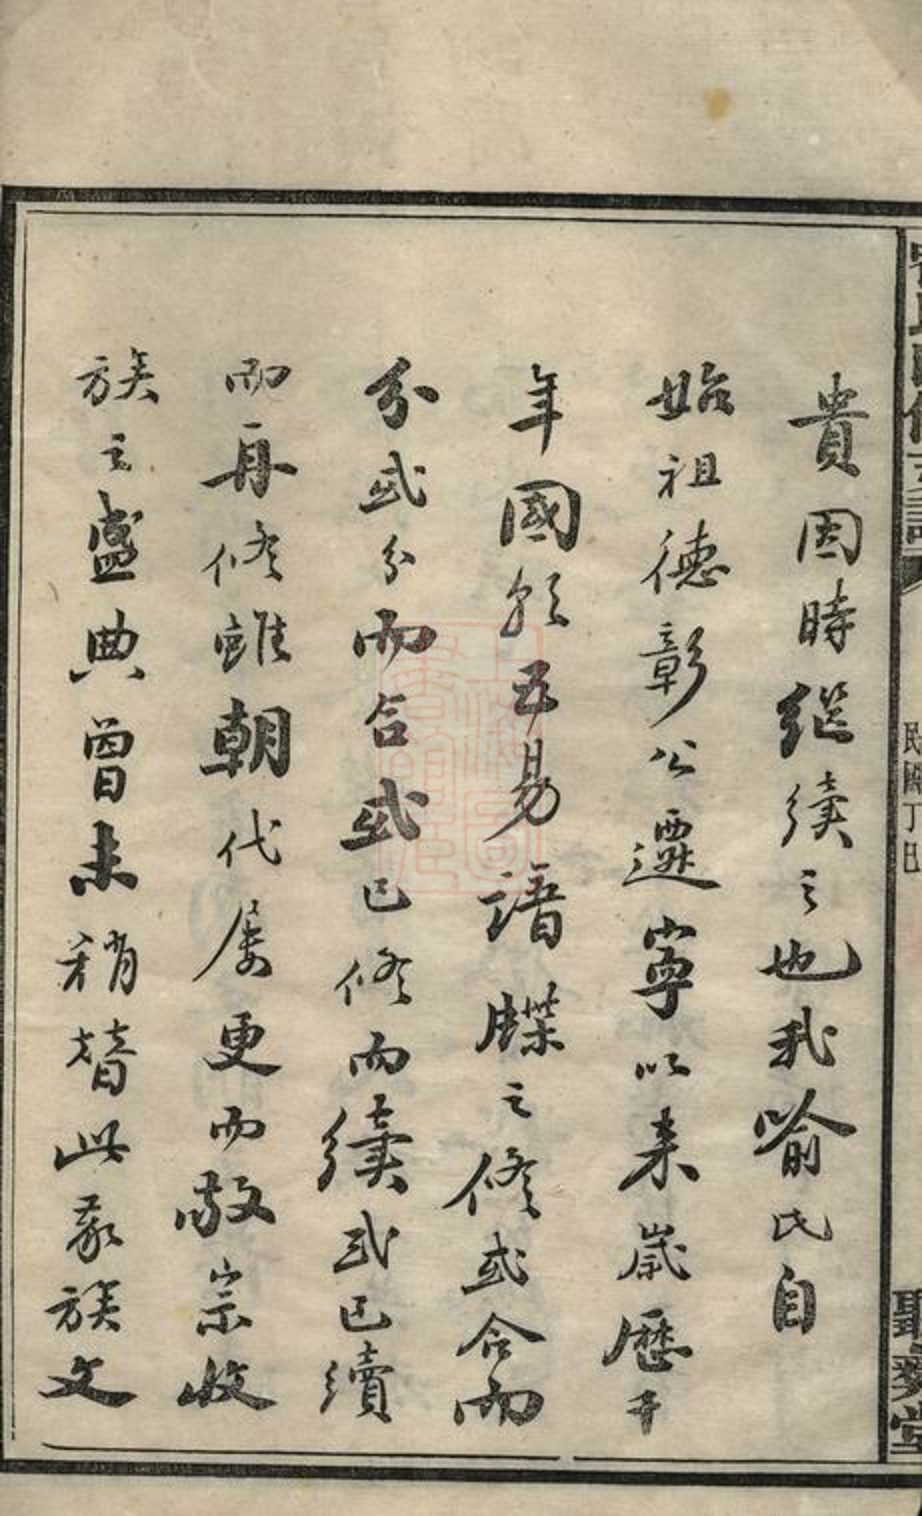 貴因時継續之也我喻氏自
始祖德彰公遷寧以来歲歷千
年國號五易譜牒之修或合而
分或分而合或已修而續或已續
而再修雖朝代屢更而敬宗收
族之盛典曾未稍替此家族文
民國丁巳
上海圖書館藏